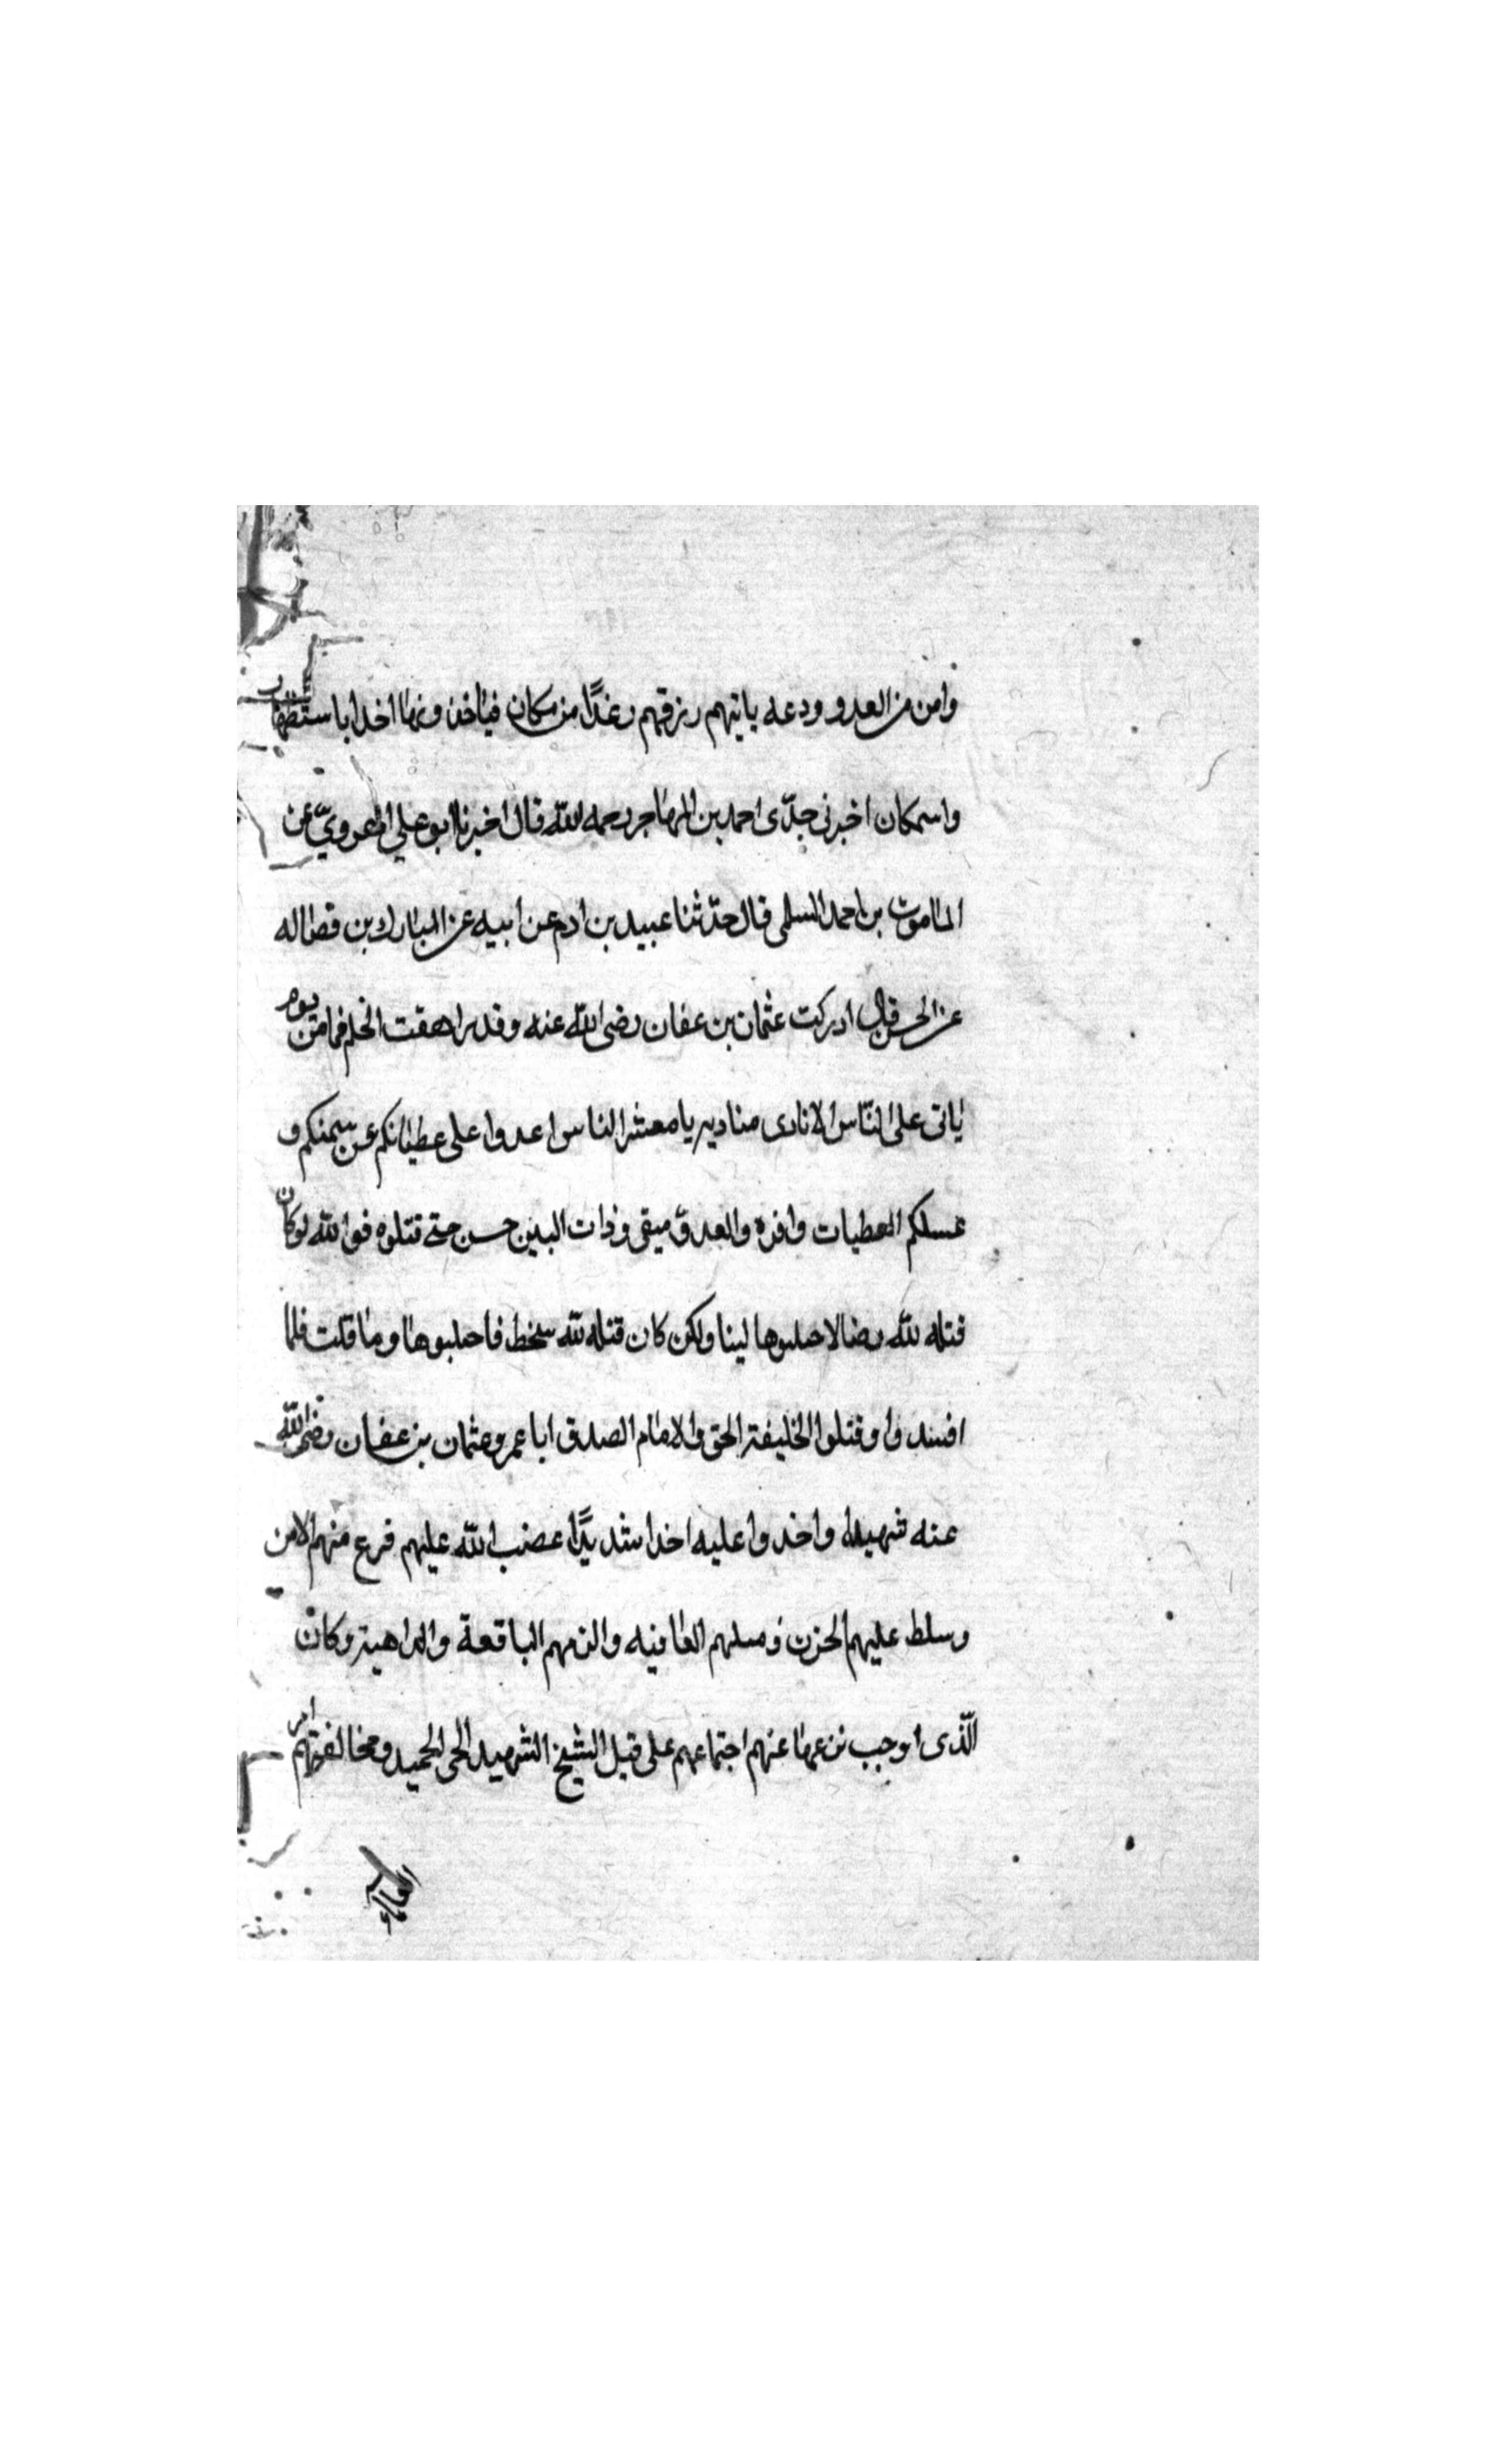 وامن من العدو ودعه ياتيهم رزقهم رغدًا من مكان فياخذونها اخذا باستقضاب
واسمكان اخبرنى جدّى احمد بن المهاجر رحمه الله قال اخبرنا ابو علي الهرويّ عن
المامون بن احمد السلمى قال حدّثنا عبيد بن ادم عن ابيه عن المبارك بن فضاله
عن الحسن قال ادركت عثمان بن عفان رضى الله عنه وقد راهقت الحلم فما من يوم
ياتى على النّاس الا نادى مناديه يا معشر الناس اغدوا على عطياتكم عن سمنكم و
عسلكم العطيات وافره والعدوّ ميقى وذات البين حسن حتى قتلوه فوالله لو كان
قتله لله رضا لاحتلبوها لبنا ولكن كان قتله لله سخط فاحتلبوها وما قلت فلما
افسدوا وقتلوا الخليفة الحق والامام الصدق ابا عمرو عثمان بن عفان رضى الله
عنه شهيدا واخدوا عليه اخدا شديدًا غضب الله عليهم فرع منهم الامن
وسلط عليهم الحزن وسلبهم العافيه والزمهم الباقعة والداهية وكان
الّذى اوجب نزعها عنهم اجتماعهم على قتل الشيخ الشهيد الحى الحميد ومخالفتهم امر